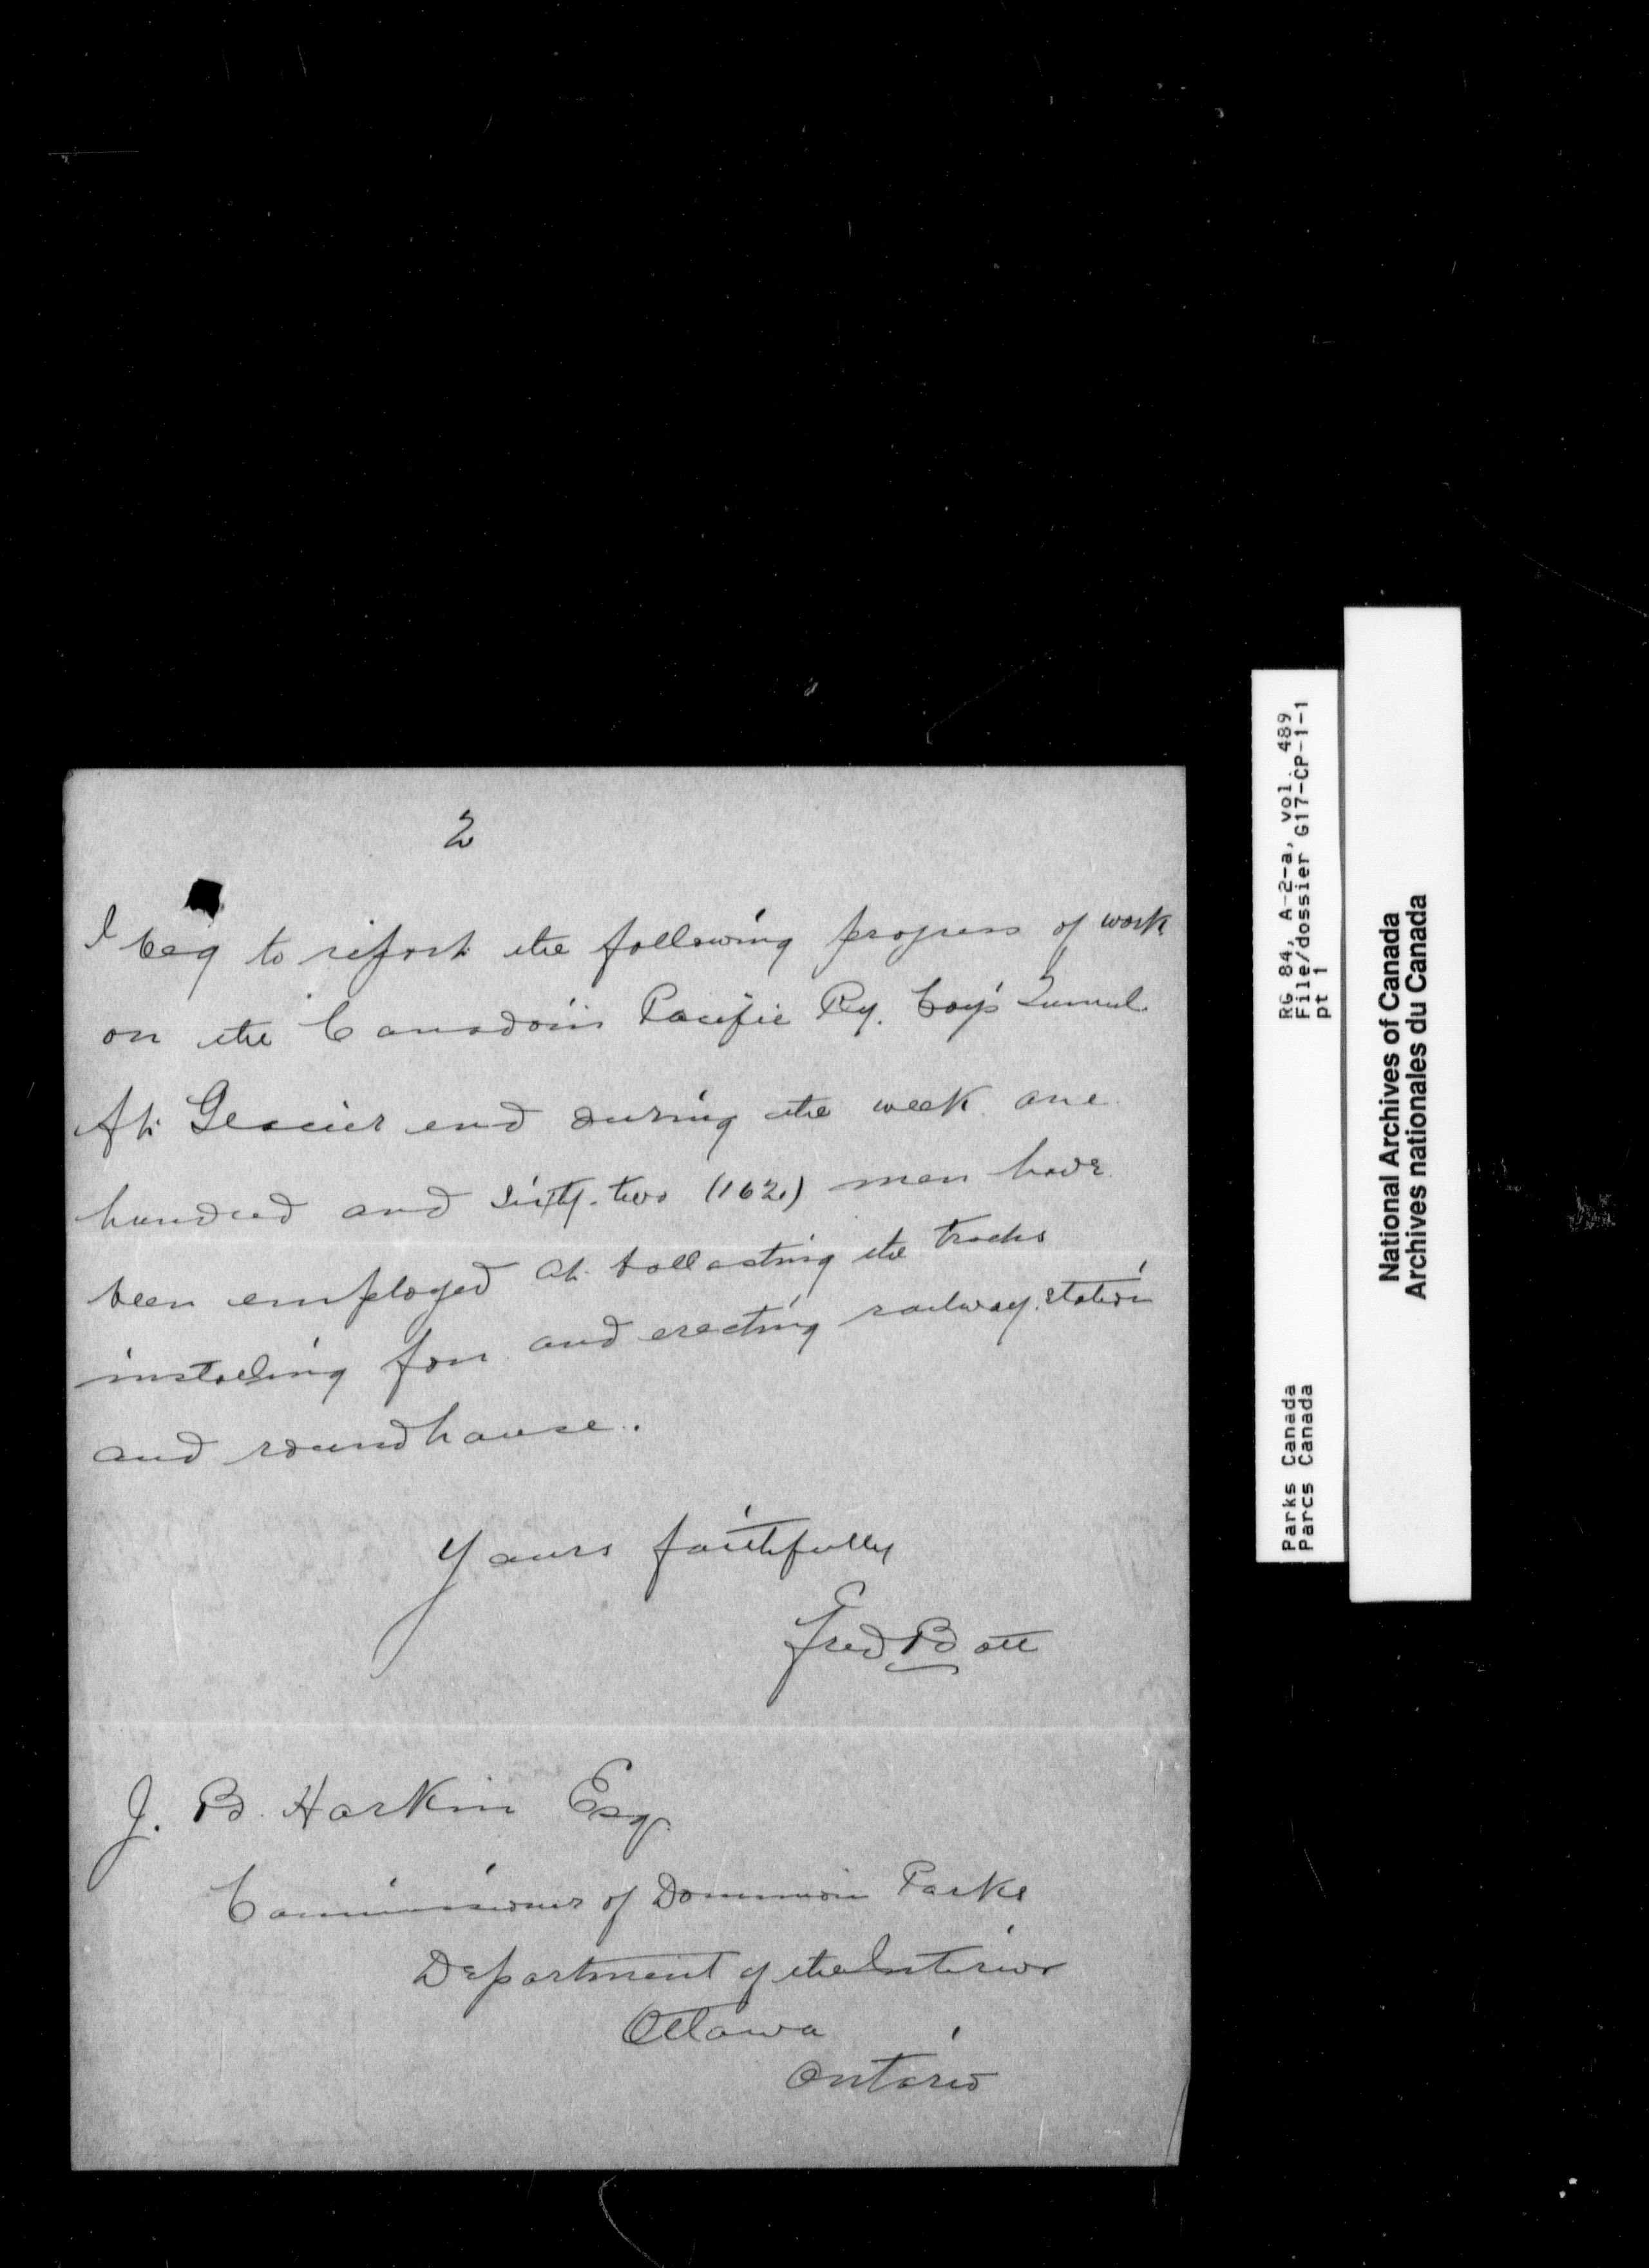 2
I beg to report the following progress of work
on the Canadain Pacific Ry. Coy's Tunnel.
At Glacier end during the week one
hundred and sixty-two (162) men have
been employed at ballasting the tracks
installing fan and erecting railway station
and roundhouse.
Yours faithfully
Fred Bott
J. B. Harkin Esq.
Commissioner of Dominion Parks
Department of the Interior
Ottawa
Ontario
RG 84, A-2-a, vol. 489
File/dossier G17-CP-1-1
pt 1
Parks Canada
Parcs Canada
National Archives of Canada
Archives nationales du Canada